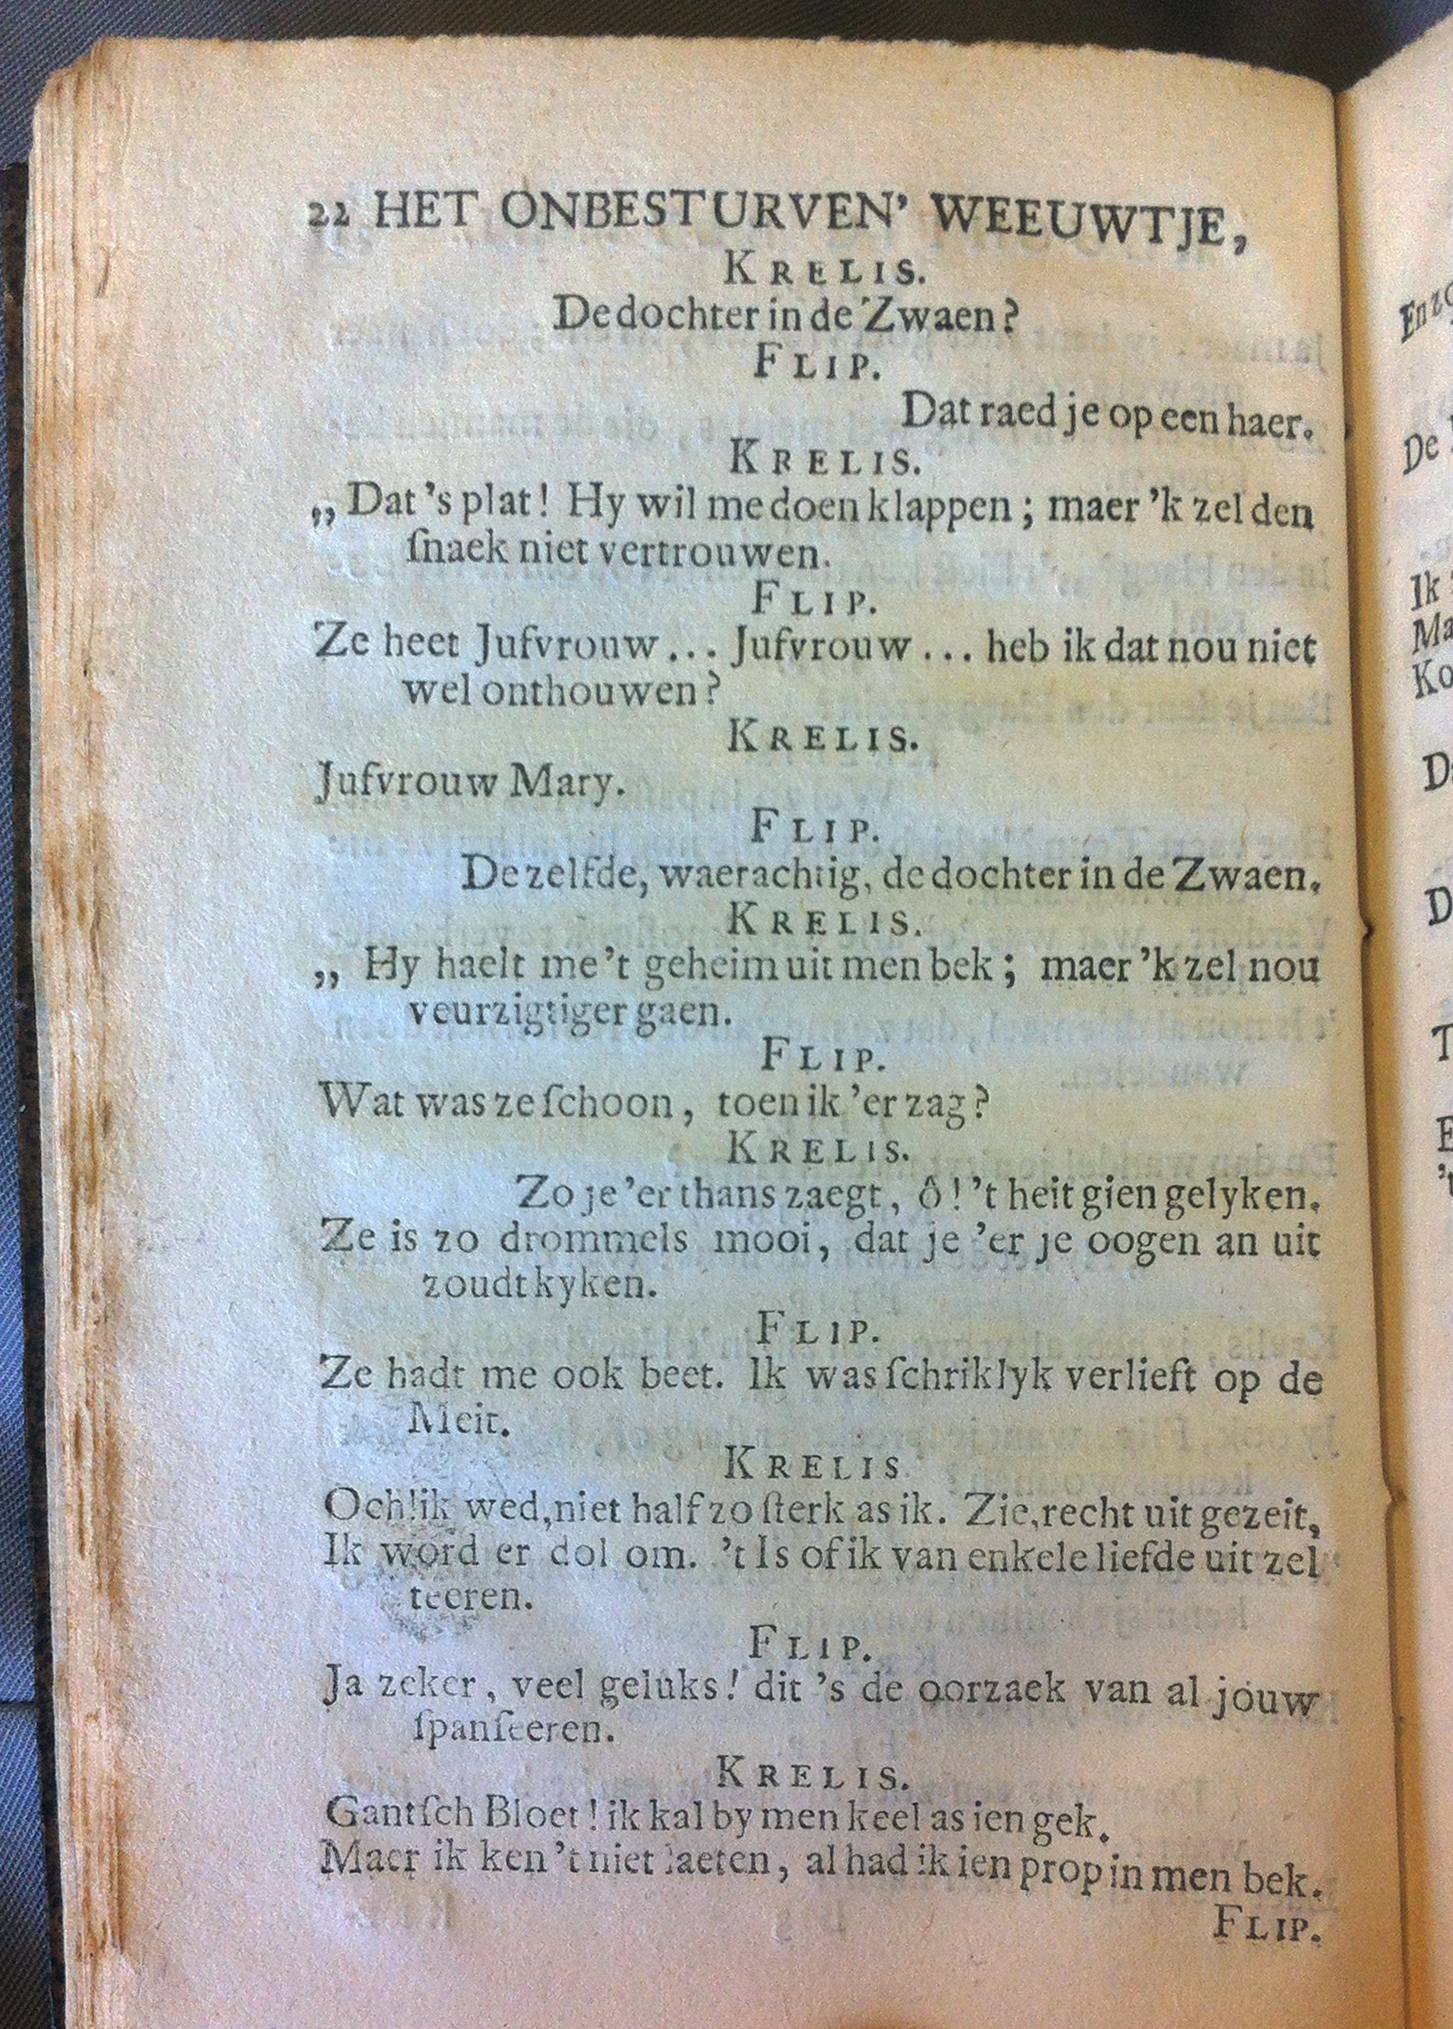 22 HET ONBESTURVEN’ WEEUWTJE,
KRELIS.
De dochter in de Zwaen?
FLIP.
Dat raed je op een haer.
KRELIS.
„ Dat ’s plat! Hy wil me doen klappen; maer ’k zel den
ſnaek niet vertrouwen.
FLIP.
Ze heet Jufvrouw... Jufvrouw... heb ik dat nou niet
wel onthouwen?
KRELIS.
Jufvrouw Mary.
FLIP.
De zelfde, waerachtig, de dochter in de Zwaen.
KRELIS.
„ Hy haelt me ’t geheim uit men bek; maer ’k zel nou
veurzigtiger gaen.
FLIP.
Wat was ze ſchoon, toen ik ’er zag?
KRELIS.
Zo je ’er thans zaegt, ô! ’t heit gien gelyken.
Ze is zo drommels mooi, dat je ’er je oogen an uit
zoudt kyken.
FLIP.
Ze hadt me ook beet. Ik was ſchriklyk verlieft op de
Meit.
KRELIS
Och! ik wed, niet half zo ſterk as ik. Zie, recht uit gezeit,
Ik word er dol om. ’t Is of ik van enkele liefde uit zel
teeren.
FLIP.
Ja zeker, veel geluks! dit ’s de oorzaek van al jouw
ſpanſeeren.
KRELIS.
Gantſch Bloet! ik kal by men keel as ien gek.
Maer ik ken ’t niet laeten, al had ik ien prop in men bek.
FLIP.
En zo
De
Ik
Ma
Ko
D
D
T
E